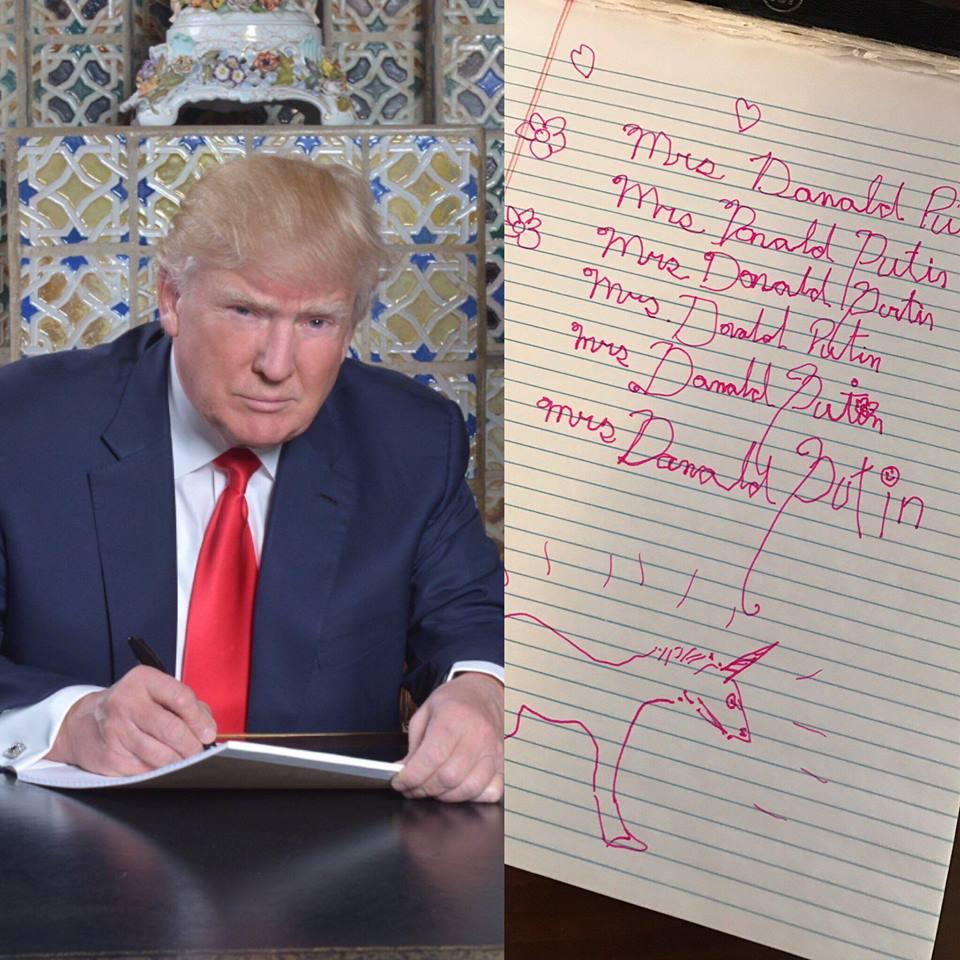 Mrs Donald Pu
Mrs Donald Putin
Mrs Donald Putin
Mrs. Donald Putin
Mrs Donald Putin
Mrs Donald Putin